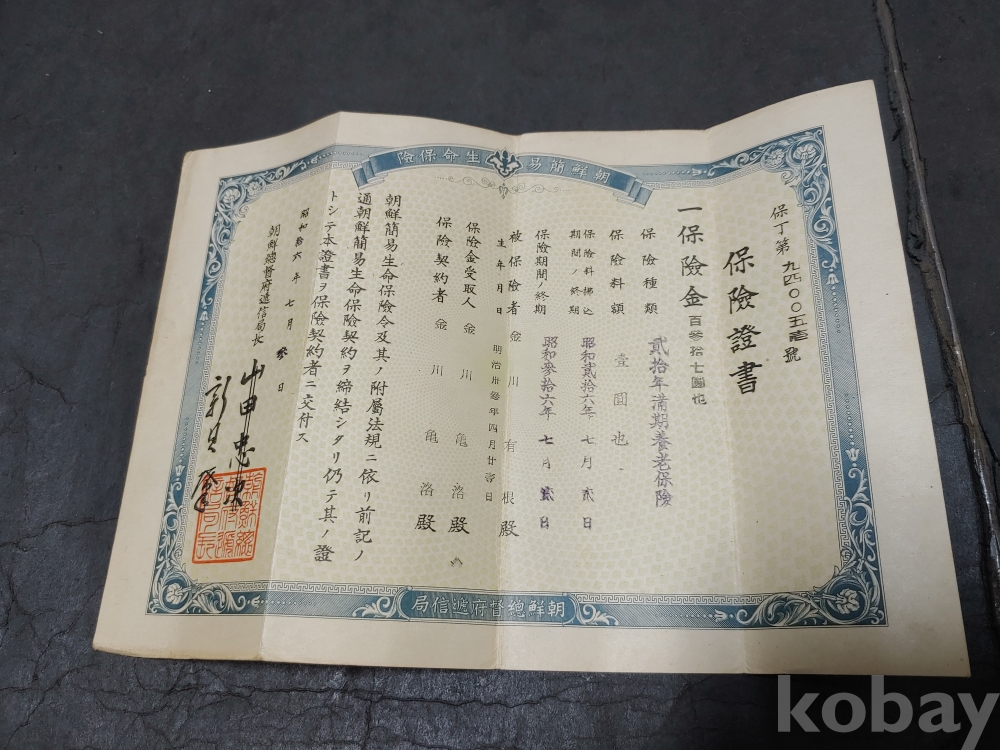 險保命生易簡鮮朝
保丁第九四〇〇五壱號
保險證書
一保險金百參拾七圓也
保險種類 貳拾年滿期養老保險
保險料額 壹圓也
保險料拂込期間ノ終期 昭和貳拾六年七月貳日
保險期間ノ終期 昭和參拾六年七月貳日
被保險者 金川有根殿
生年月日
保險金受取人 金川亀洛殿
保險契約者 金川亀洛殿
朝鮮簡易生命保險令及其ノ附屬法規ニ依リ前記ノ
通朝鮮簡易生命保險契約ヲ締結シタリ仍テ其ノ證
トシテ本證書ヲ保險契約者ニ交付ス
昭和拾六年七月參日
朝鮮總督府遞信局長 山田忠
局信遞府督總鮮朝
kobay